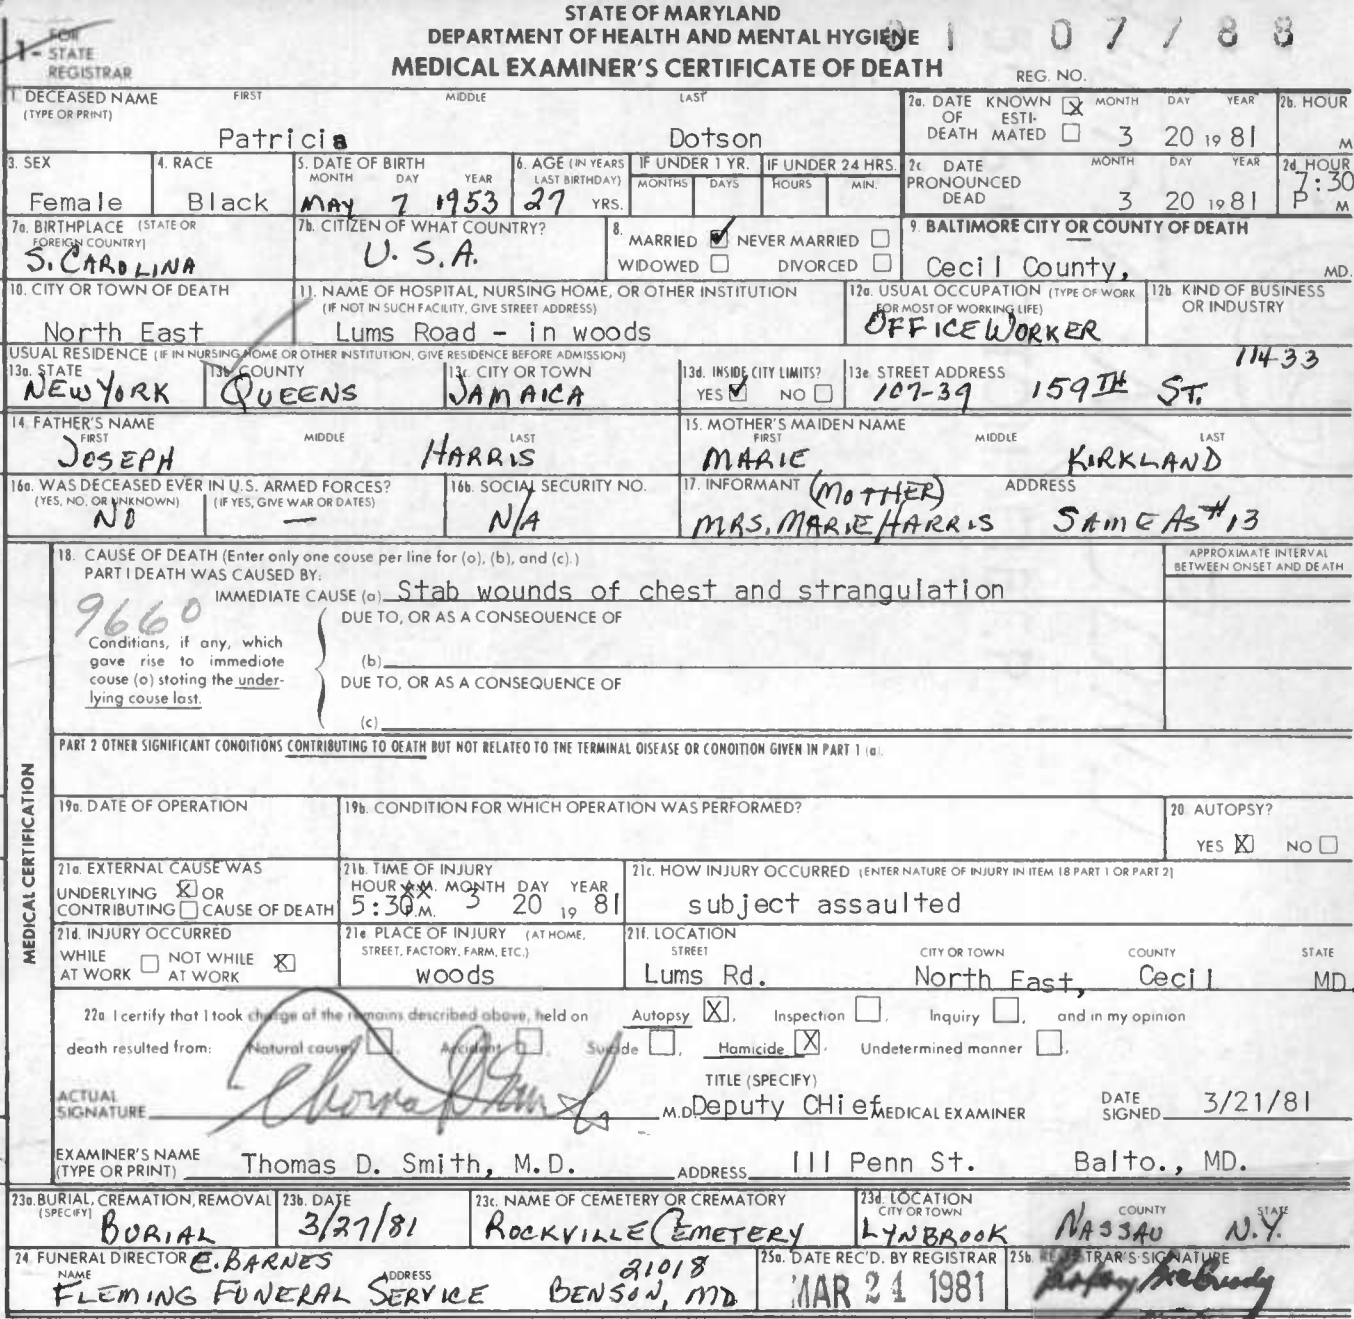 STATE OF MARYLAND
DEPARTMENT OF HEALTH AND MENTAL HYGIENE
MEDICAL EXAMINER'S CERTIFICATE OF DEATH
1- FOR STATE REGISTRAR
REG. NO. 81 07788
1. DECEASED NAME (TYPE OR PRINT) FIRST MIDDLE LAST
Patricia Dotson
2a. DATE OF DEATH KNOWN [X] ESTIMATED [ ] MONTH DAY YEAR
3 20 1981
2b. HOUR M
3. SEX
Female
4. RACE
Black
5. DATE OF BIRTH MONTH DAY YEAR
MAY 7 1953
6. AGE (IN YEARS LAST BIRTHDAY)
27 YRS.
IF UNDER 1 YR. MONTHS DAYS
IF UNDER 24 HRS. HOURS MIN.
2c. DATE PRONOUNCED DEAD MONTH DAY YEAR
3 20 1981
2d. HOUR
7:30 P M
7a. BIRTHPLACE (STATE OR FOREIGN COUNTRY)
S. CAROLINA
7b. CITIZEN OF WHAT COUNTRY?
U.S.A.
8. MARRIED [✓] NEVER MARRIED [ ]
WIDOWED [ ] DIVORCED [ ]
9. BALTIMORE CITY OR COUNTY OF DEATH
Cecil County, MD.
10. CITY OR TOWN OF DEATH
North East
11. NAME OF HOSPITAL, NURSING HOME, OR OTHER INSTITUTION
(IF NOT IN SUCH FACILITY, GIVE STREET ADDRESS)
Lums Road - in woods
12a. USUAL OCCUPATION (TYPE OF WORK FOR MOST OF WORKING LIFE)
OFFICE WORKER
12b. KIND OF BUSINESS OR INDUSTRY
USUAL RESIDENCE (IF IN NURSING HOME OR OTHER INSTITUTION, GIVE RESIDENCE BEFORE ADMISSION)
13a. STATE
NEW YORK
13b. COUNTY
QUEENS
13c. CITY OR TOWN
JAMAICA
13d. INSIDE CITY LIMITS?
YES [✓] NO [ ]
13e. STREET ADDRESS 11433
107-39 159TH ST.
14. FATHER'S NAME FIRST MIDDLE LAST
JOSEPH HARRIS
15. MOTHER'S MAIDEN NAME FIRST MIDDLE LAST
MARIE KIRKLAND
16a. WAS DECEASED EVER IN U.S. ARMED FORCES?
(YES, NO, OR UNKNOWN) (IF YES, GIVE WAR OR DATES)
NO —
16b. SOCIAL SECURITY NO.
N/A
17. INFORMANT (MOTHER) ADDRESS
MRS. MARIE HARRIS SAME AS #13
18. CAUSE OF DEATH (Enter only one cause per line for (a), (b), and (c).)
APPROXIMATE INTERVAL BETWEEN ONSET AND DEATH
PART I DEATH WAS CAUSED BY:
IMMEDIATE CAUSE (a) Stab wounds of chest and strangulation
9660
DUE TO, OR AS A CONSEQUENCE OF
Conditions, if any, which gave rise to immediate cause (a) stating the underlying cause last.
(b)
DUE TO, OR AS A CONSEQUENCE OF
(c)
PART 2 OTHER SIGNIFICANT CONDITIONS CONTRIBUTING TO DEATH BUT NOT RELATED TO THE TERMINAL DISEASE OR CONDITION GIVEN IN PART 1 (a).
MEDICAL CERTIFICATION
19a. DATE OF OPERATION
19b. CONDITION FOR WHICH OPERATION WAS PERFORMED?
20. AUTOPSY?
YES [X] NO [ ]
21a. EXTERNAL CAUSE WAS
UNDERLYING [X] OR
CONTRIBUTING [ ] CAUSE OF DEATH
21b. TIME OF INJURY
HOUR A.M. MONTH DAY YEAR
5:30 P.M. 3 20 1981
21c. HOW INJURY OCCURRED (ENTER NATURE OF INJURY IN ITEM 18 PART 1 OR PART 2)
subject assaulted
21d. INJURY OCCURRED
WHILE AT WORK [ ] NOT WHILE AT WORK [X]
21e. PLACE OF INJURY (AT HOME, STREET, FACTORY, FARM, ETC.)
woods
21f. LOCATION
STREET CITY OR TOWN COUNTY STATE
Lums Rd. North East, Cecil MD.
22a. I certify that I took charge of the remains described above, held on Autopsy [X], Inspection [ ], Inquiry [ ], and in my opinion
death resulted from: Natural causes [ ], Accident [ ], Suicide [ ], Homicide [X], Undetermined manner [ ],
ACTUAL SIGNATURE Thomas D. Smith M.D.
TITLE (SPECIFY)
Deputy CHief MEDICAL EXAMINER
DATE SIGNED 3/21/81
EXAMINER'S NAME (TYPE OR PRINT) Thomas D. Smith, M.D.
ADDRESS 111 Penn St. Balto., MD.
23a. BURIAL, CREMATION, REMOVAL (SPECIFY)
BURIAL
23b. DATE
3/27/81
23c. NAME OF CEMETERY OR CREMATORY
ROCKVILLE CEMETERY
23d. LOCATION
CITY OR TOWN COUNTY STATE
LYNBROOK NASSAU N.Y.
24. FUNERAL DIRECTOR E. BARNES
NAME ADDRESS 21018
FLEMING FUNERAL SERVICE BENSON, MD
25a. DATE REC'D. BY REGISTRAR
MAR 24 1981
25b. REGISTRAR'S SIGNATURE